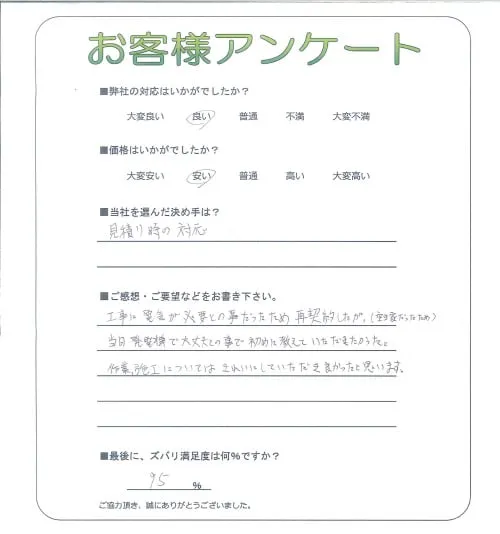 お客様アンケート
■弊社の対応はいかがでしたか？
大変良い 良い 普通 不満 大変不満
■価格はいかがでしたか？
大変安い 安い 普通 高い 大変高い
■当社を選んだ決め手は？
見積り時の対応
■ご感想・ご要望などをお書き下さい。
工事に電気が必要との事だったため再契約したが、(空き家だったため)
当日発電機で大丈夫との事で初めに教えていただきたかった。
作業、施工についてはきれいにしていただき良かったと思います。
■最後に、ズバリ満足度は何%ですか？
95 %
ご協力頂き、誠にありがとうございました。